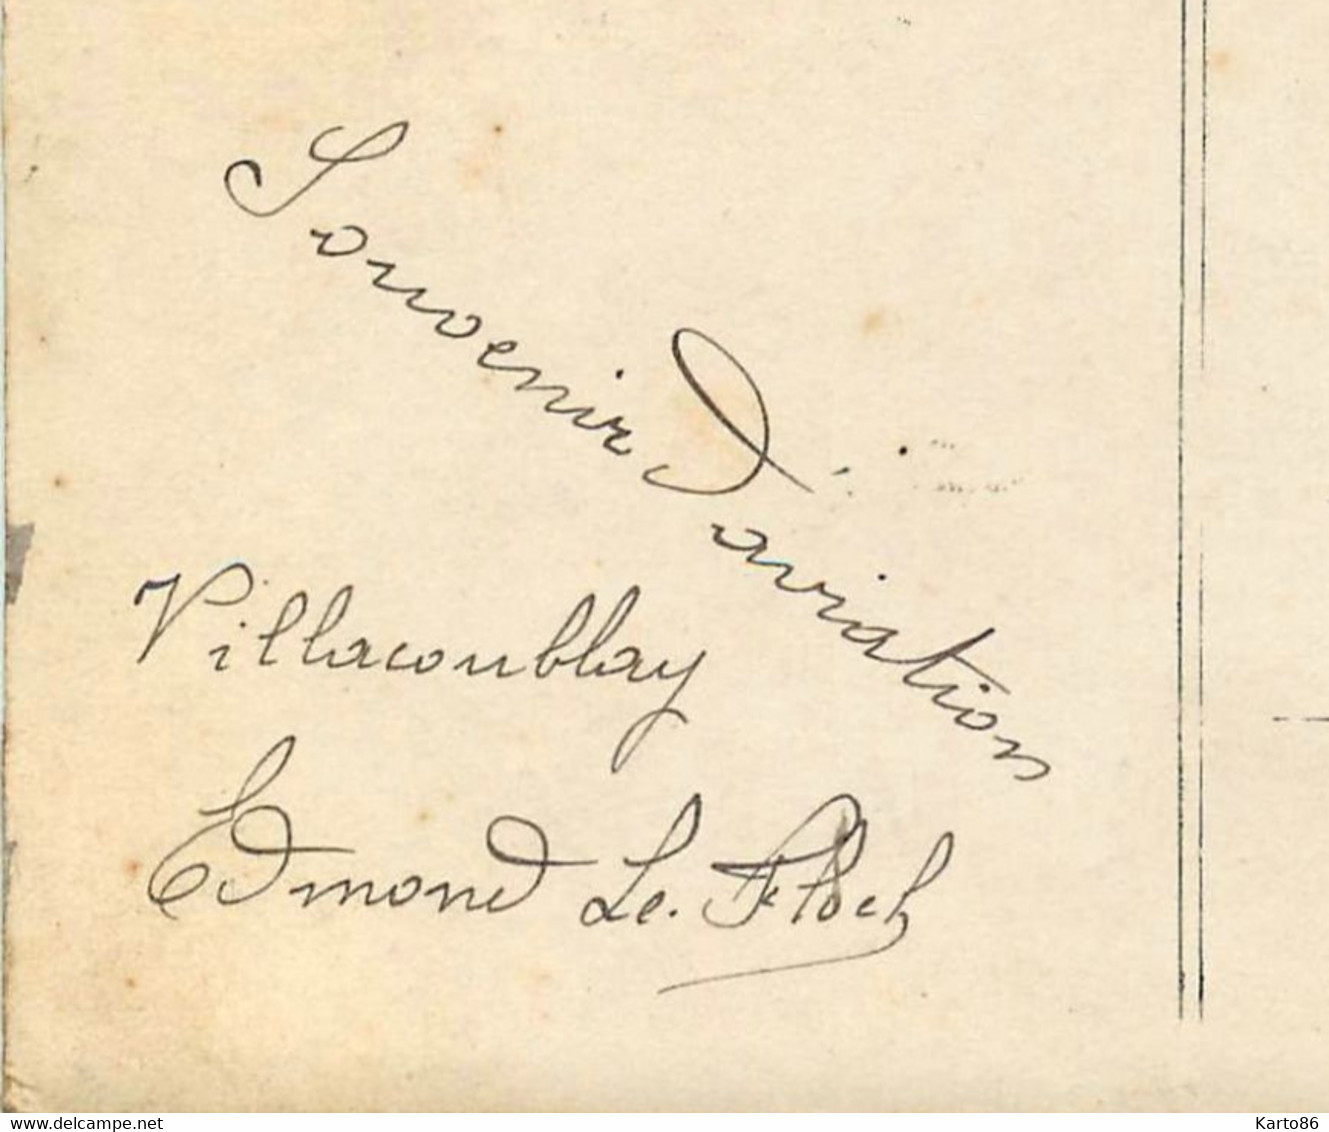 Souvenir D'aviation
Villacoublay
Edmond Le. Floch
www.delcampe.net
Karto86